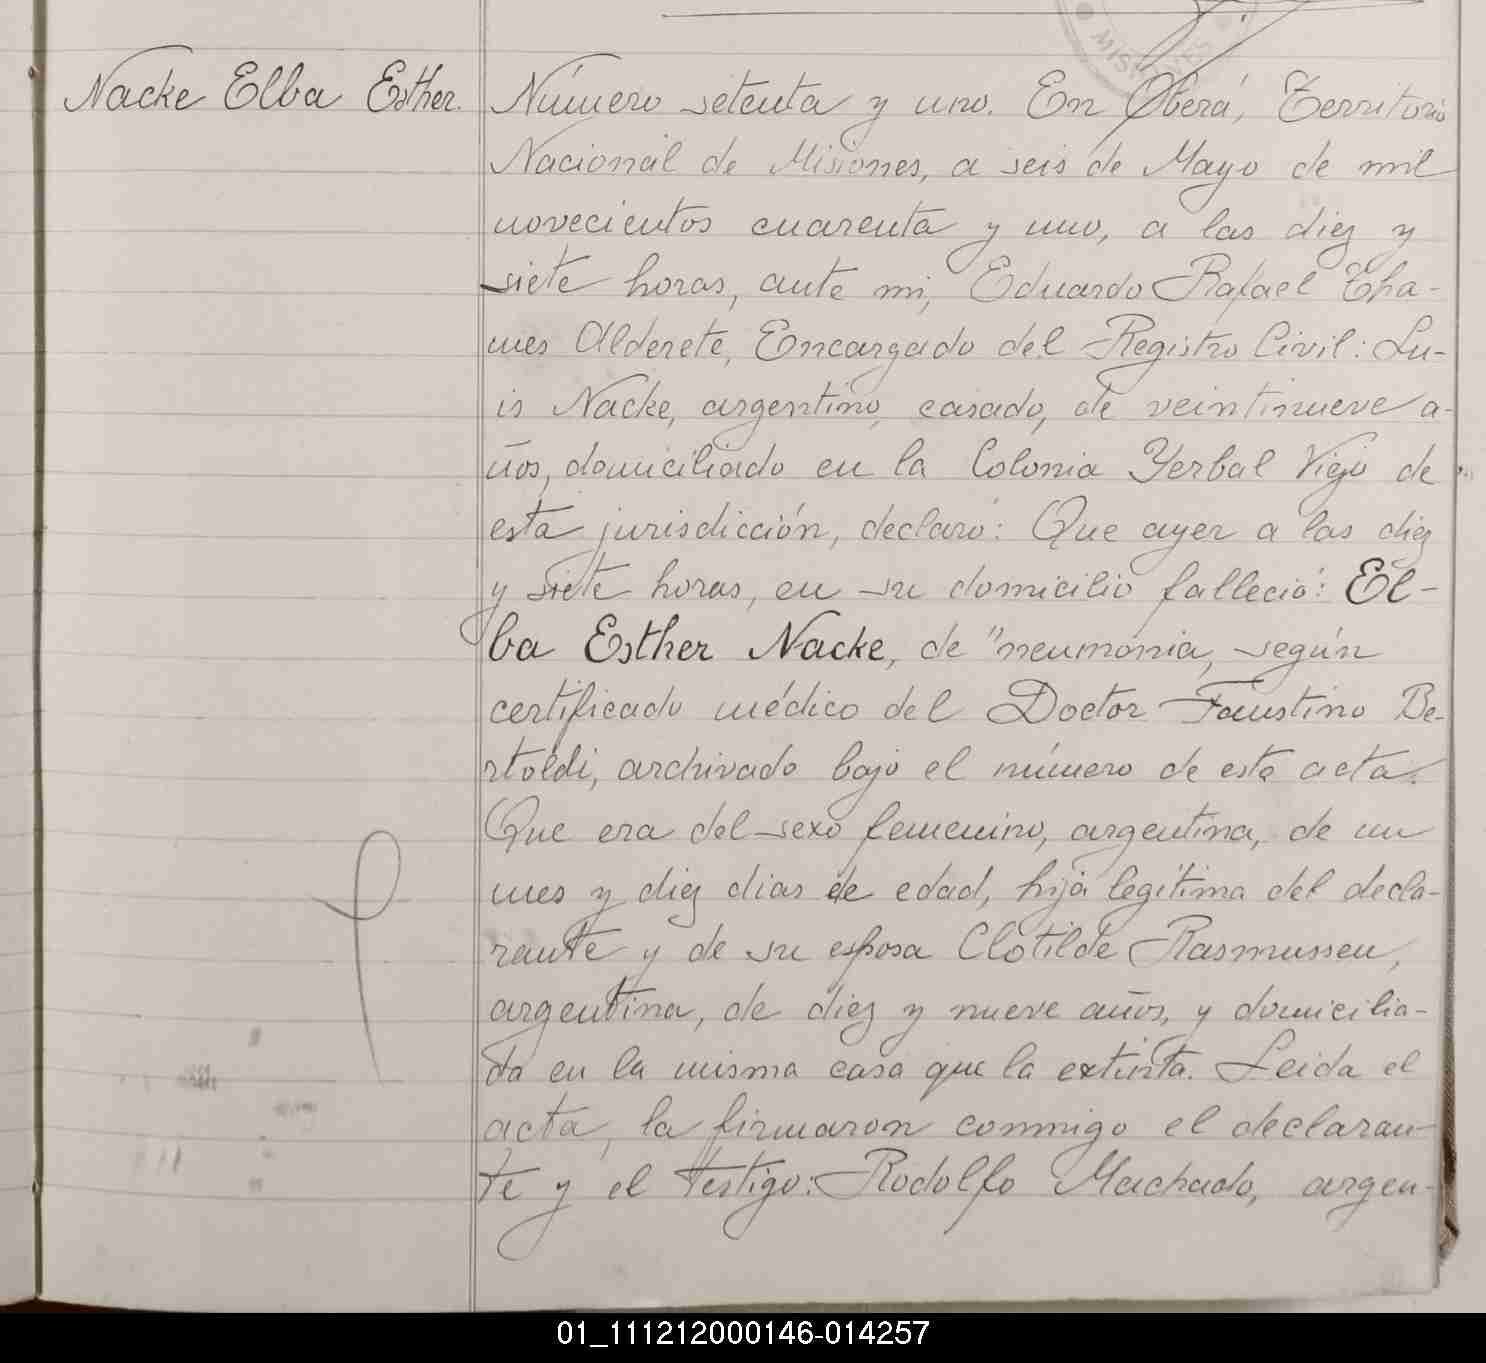 MISIONES
Nacke Elba Esther.
Número setenta y uno. En Oberá, Territorio
Nacional de Misiones, a seis de Mayo de mil
novecientos cuarenta y uno, a las diez y
siete horas, ante mi, Eduardo Rafael Tha-
mes Alderete, Encargado del Registro Civil: Lu-
is Nacke, argentino, casado, de veintinueve a-
ños, domiciliado en la Colonia Yerbal Viejo de
esta jurisdicción, declaró: Que ayer a las diez
y siete horas, en su domicilio falleció: El-
ba Esther Nacke, de "neumonia, según
certificado médico del Doctor Faustino Be-
rtoldi, archivado bajo el número de esta acta.
Que era del sexo femenino, argentina, de un
mes y diez dias de edad, hija legítima del decla-
rante y de su esposa Clotilde Rasmussen,
argentina, de diez y nueve años, y domicilia-
da en la misma casa que la extinta. Leida el
acta, la firmaron conmigo el declaran-
te y el testigo: Rodolfo Machado, argen-
01_111212000146-014257